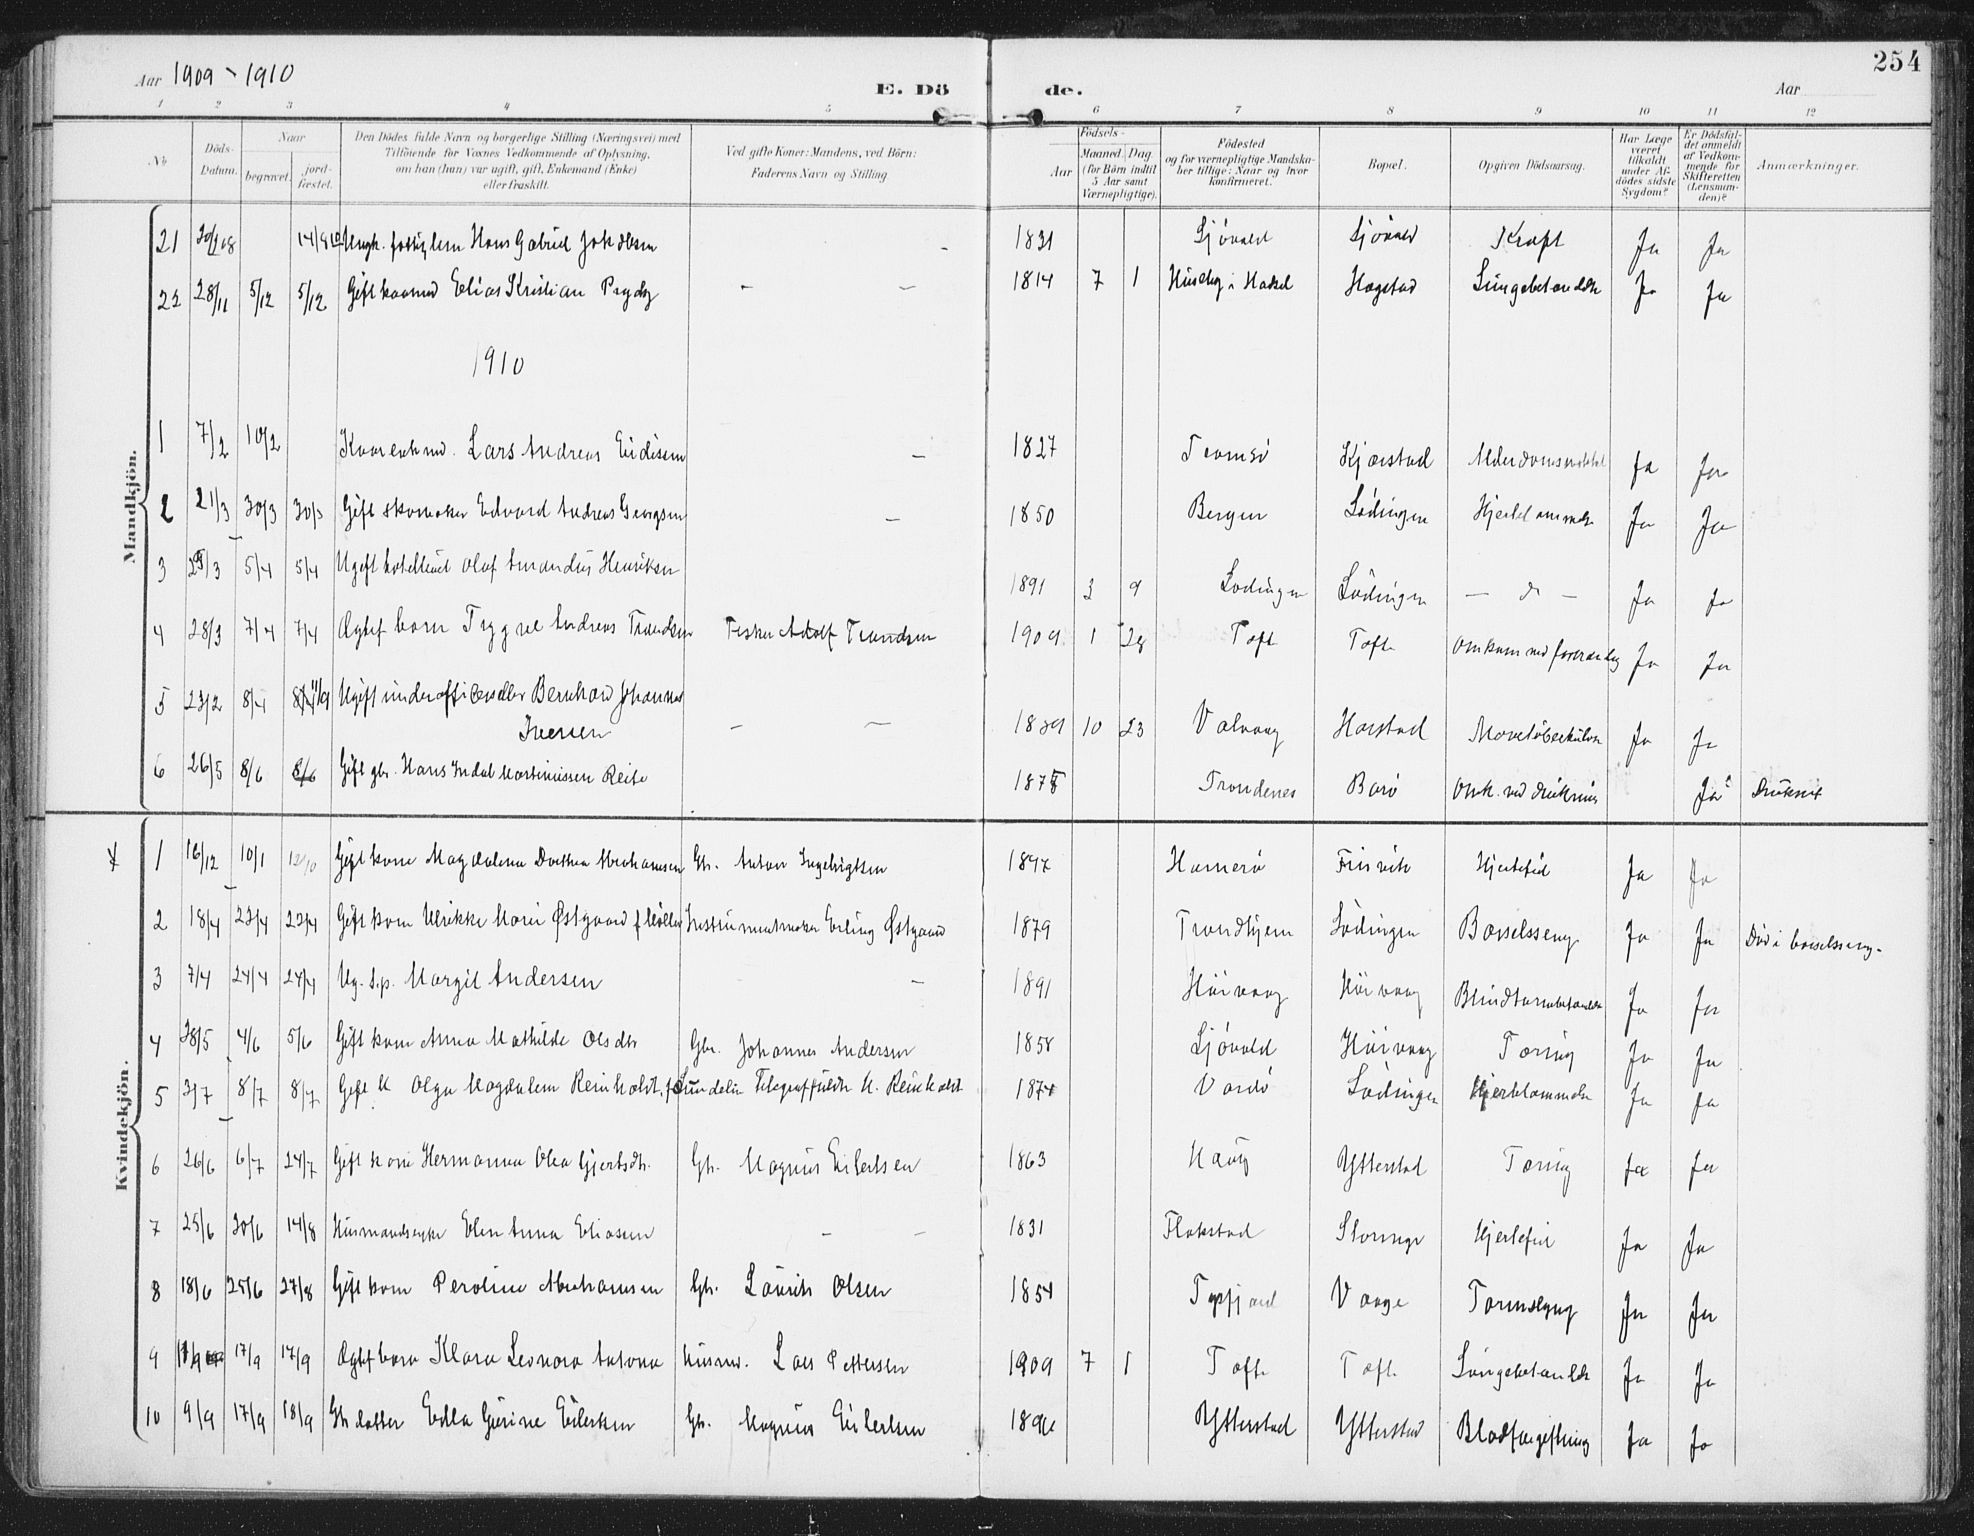 254
Aar 1909 - 1910 E. Dö de. Aar
1 2 3 4 5 6 7 8 9 10 11 12
No. Döds-Datum. Naar begravet. jord-fæstet. Den Dödes fulde Navn og borgerlige Stilling (Næringsvei) med Tilföiende for Voxnes Vedkommende af Oplysning, om han (hun) var ugift, gift, Enkemand (Enke) eller fraskilt. Ved gifte Koner: Mandens, ved Börn: Faderens Navn og Stilling. Födsels- Aar Maaned. Dag (for Börn indtil 5 Aar samt Værnepligtige). Födested og for værnepligtige Mandskaber tillige: Naar og hvor konfirmeret. Bopæl. Opgiven Dödsaarsag. Har Læge været tilkaldt under Afdödes sidste Sygdom? Er Dödsfaldet anmeldt af Vedkommende for Skifteretten (Lensmanden)? Anmærkninger.
Mandkjön.
21 14/9 10 Hans Gabriel Jakobsen - 1831 Sjövold Sjövold Kræft Ja Ja
22 28/11 5/12 5/12 Gift Elias Kristian Prydz - - 1814 7 1 Hagstad Lungebetændelse Ja Ja
1910
1 7/2 10/2 Lars Andreas - 1827 Tromsö Kjærstad Ja Ja
2 21/3 30/3 30/3 Gift skomaker Edvard Andreas Georgsen - 1850 Bergen Lödingen Hjertelammelse Ja Ja
3 5/4 5/4 Ugift Olaf Amandus Henriksen 1891 3 9 Lödingen Lödingen - - Ja Ja
4 28/3 7/4 7/4 Ægtef barn Trygve Andreas Trondsen Fisker Adolf Trondsen 1909 1 28 Toft Toft Omkom ved Ja Ja
5 23/2 8/4 Ugift Bernhard Johannes
Iversen - - 1889 10 23 Valvaag Harstad Mavetuberkulose Ja Ja
6 26/5 8/6 8/6 Gift gbr. Hans Indal Martinussen Reite Trondenes Barö Omk. ved drukning Ja Druknet
Kvindekjön.
1 16/12 10/1 Gift kone Magdalena Dorthea Abrahamsen Gbr. Anton Ingebrigtsen Hamerö Finvik Hjertefeil Ja Ja
2 18/4 23/4 23/4 Gift kone Ulrikke Marie Østgaard f. Möller Instrumentmaker Erling Østgaard 1879 Trondhjem Lödingen Barselsseng Ja Ja Död i barselsseng.
3 7/4 24/4 24/4 Ug. Margit Andersen - 1891 Hörvaag Hörvaag Blindtarmbetændelse Ja Ja
4 28/5 4/6 5/6 Gift kone Anna Mathilde Olsdtr Gbr. Johannes Andersen 1858 Sjövold Hörvaag Tæring Ja Ja
5 3/7 8/7 8/7 Gift K Olga Magdalene Reinholdt, f. Lundelin K. Reinholdt 1874 Vardö Lödingen Hjertelammelse Ja Ja
6 26/6 6/7 24/7 Gift kone Hermanna Olea Gjertsdtr. Gbr. Magnus Eilertsen 1863 Ytterstad Tæring Ja Ja
7 25/6 30/6 14/8 Husmandsenke Elen Anna Eliasen - - 1831 Flakstad Hjertefeil Ja Ja
8 18/6 25/6 27/8 Gift kone Peroline Abrahamsen Gbr. Laurits Olsen 1854 Vaage Ja Ja
9 17/9 17/9 Ægtef barn Klara Leonora Antona Husmd. Lars Pettersen 1909 7 1 Toft Toft Lungebetændelse Ja Ja
10 9/9 17/9 18/9 Gbr datter Edla Eilertsen Gbr. Magnus Eilertsen Ytterstad Ytterstad Blodforgiftning Ja Ja